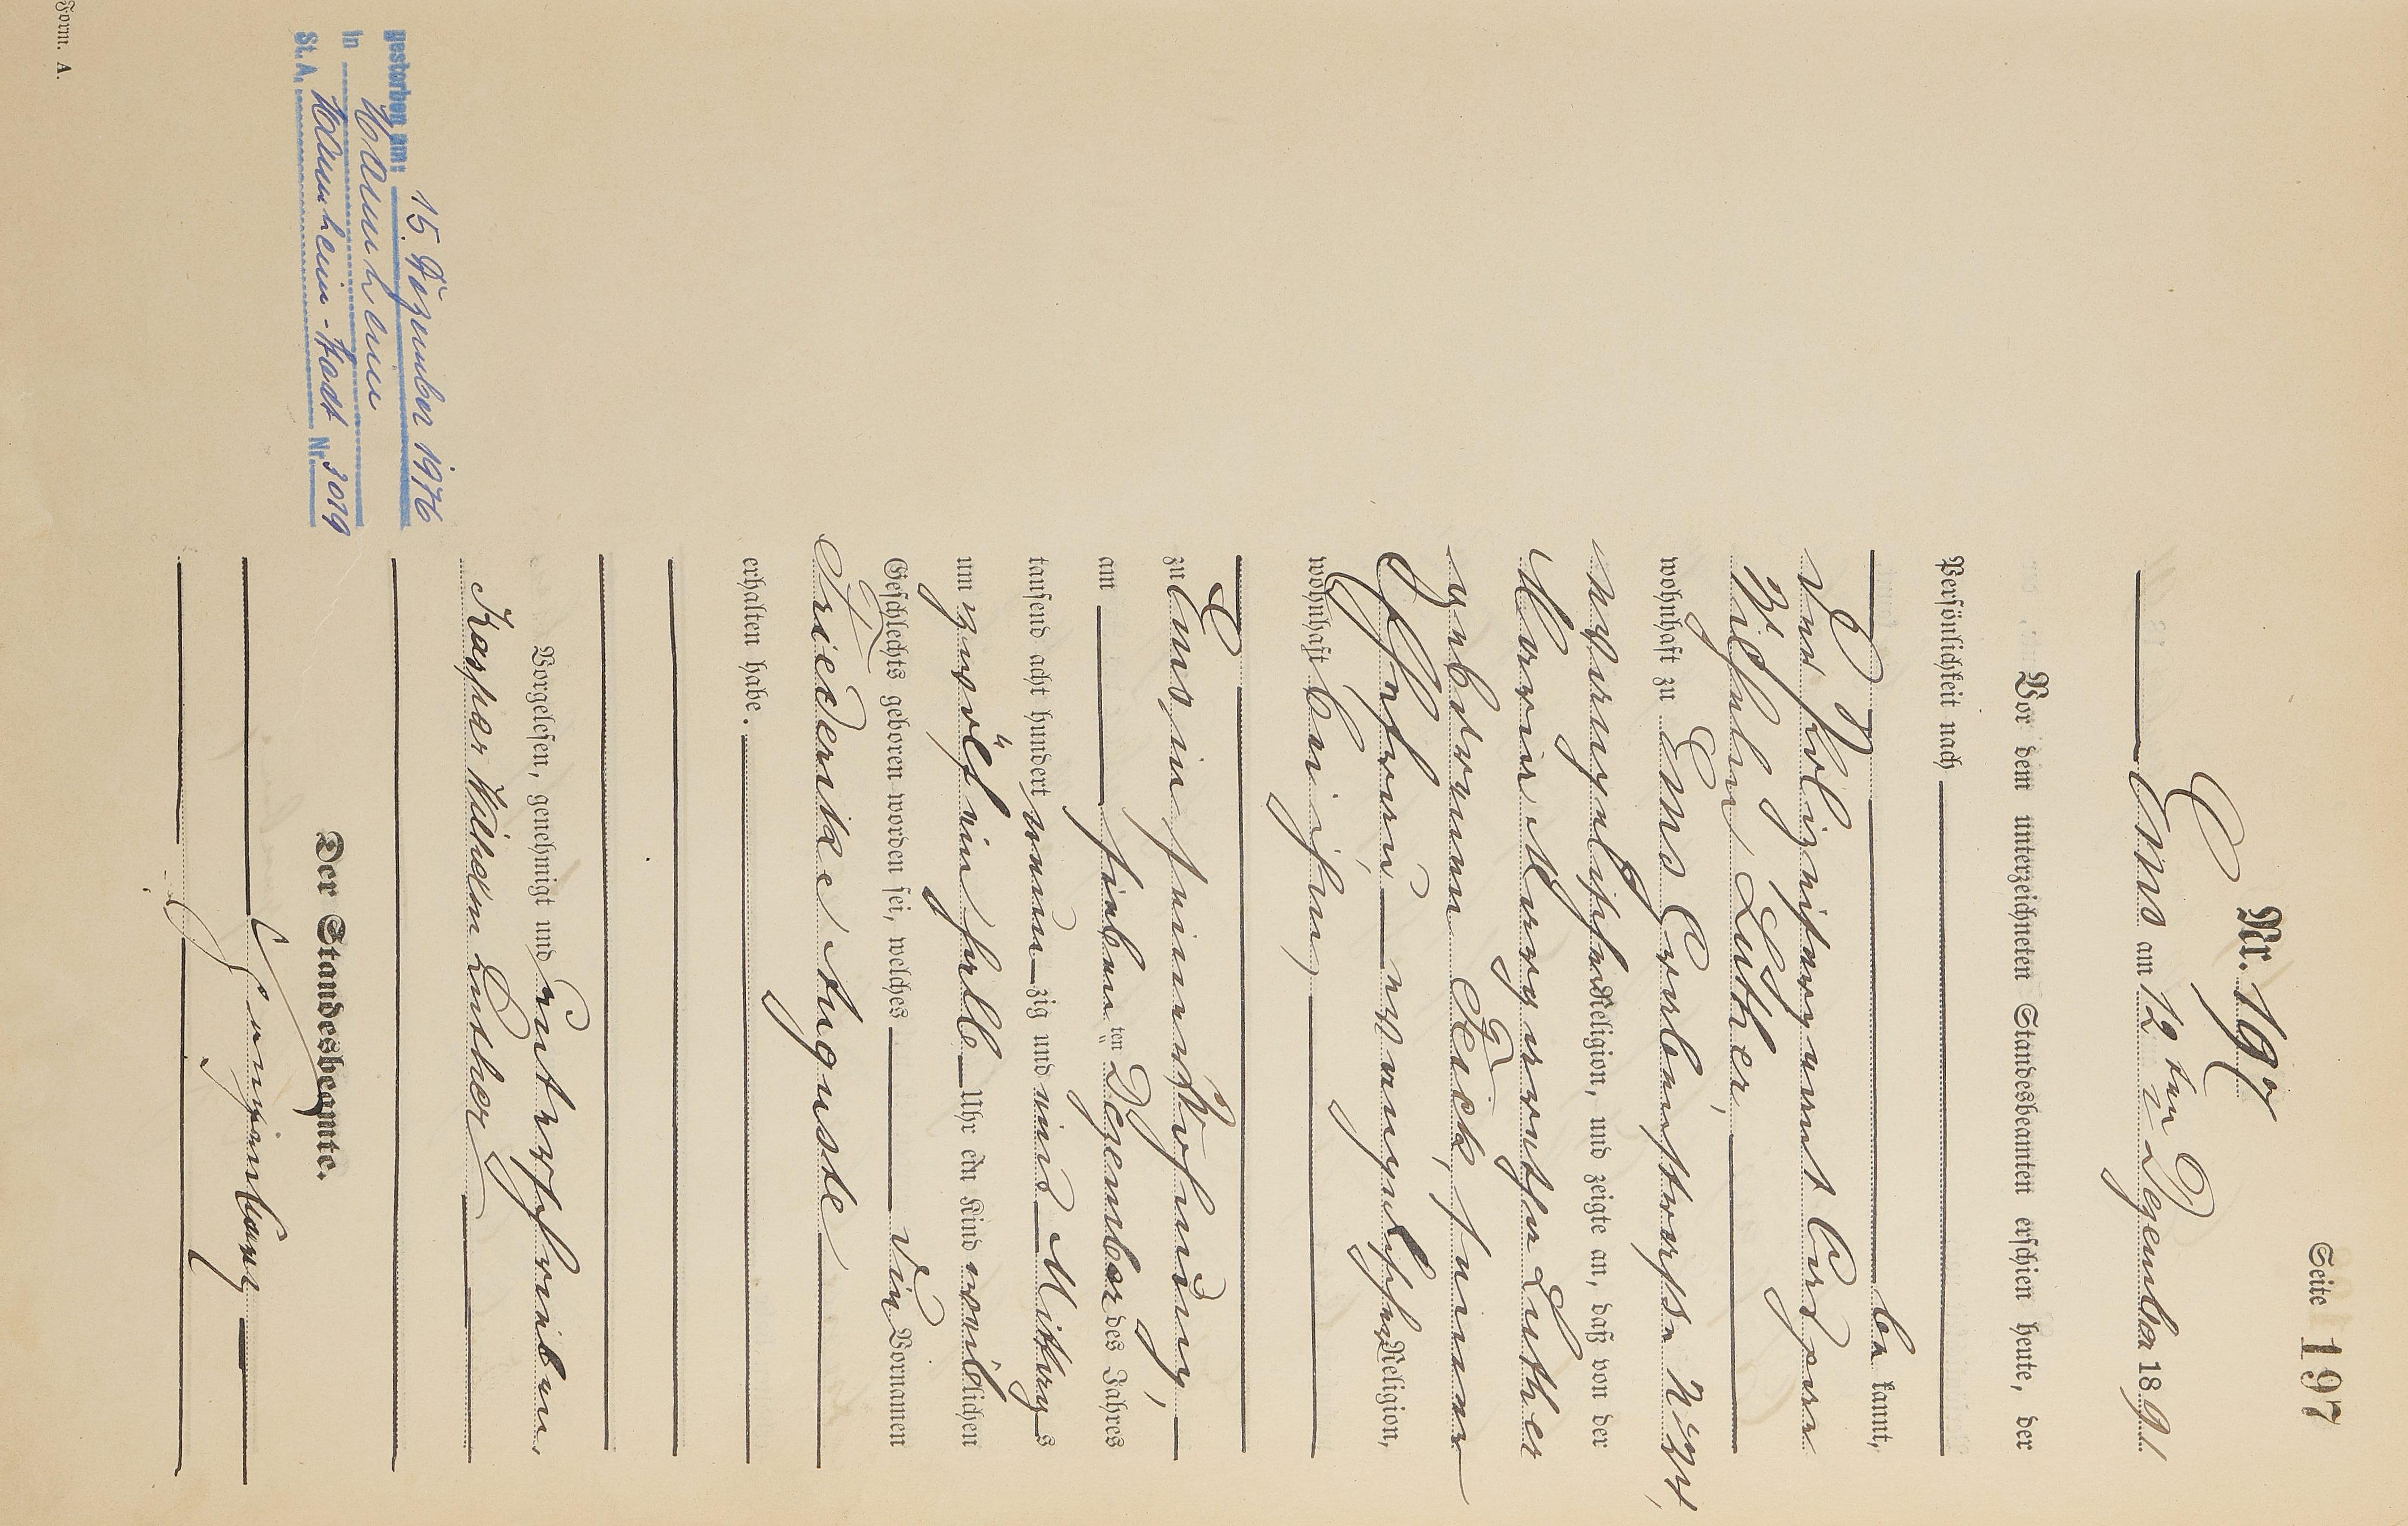 Seite 197
Nr. 197
Ems am 12ten Dezember 1891
Vor dem unterzeichneten Standesbeamten erschien heute, der
Persönlichkeit nach
be kannt,
der Polizeisergeant Casper
Wilhelm Luther,
wohnhaft zu Ems
evangelischer Religion, und zeigte an, daß von der
Maria Margaretha Luther
geborenen Feick, seiner
Ehefrau, evangelischer Religion,
wohnhaft bei ihm,
zu Ems in seiner Wohnung,
am sieben ten Dezember des Jahres
tausend acht hundert neun zig und eins Mittag s
um zwölf ein halb Uhr ein Kind weib lichen
Geschlechts geboren worden sei, welches die Vornamen
Friederike Auguste
erhalten habe.
Vorgelesen, genehmigt und unterschrieben,
Kasper Wilhelm Luther
Der Standesbeamte.
gestorben am: 15. Dezember 1976
in Mannheim
St. A. Mannheim-Stadt Nr. 3019
Form. A.